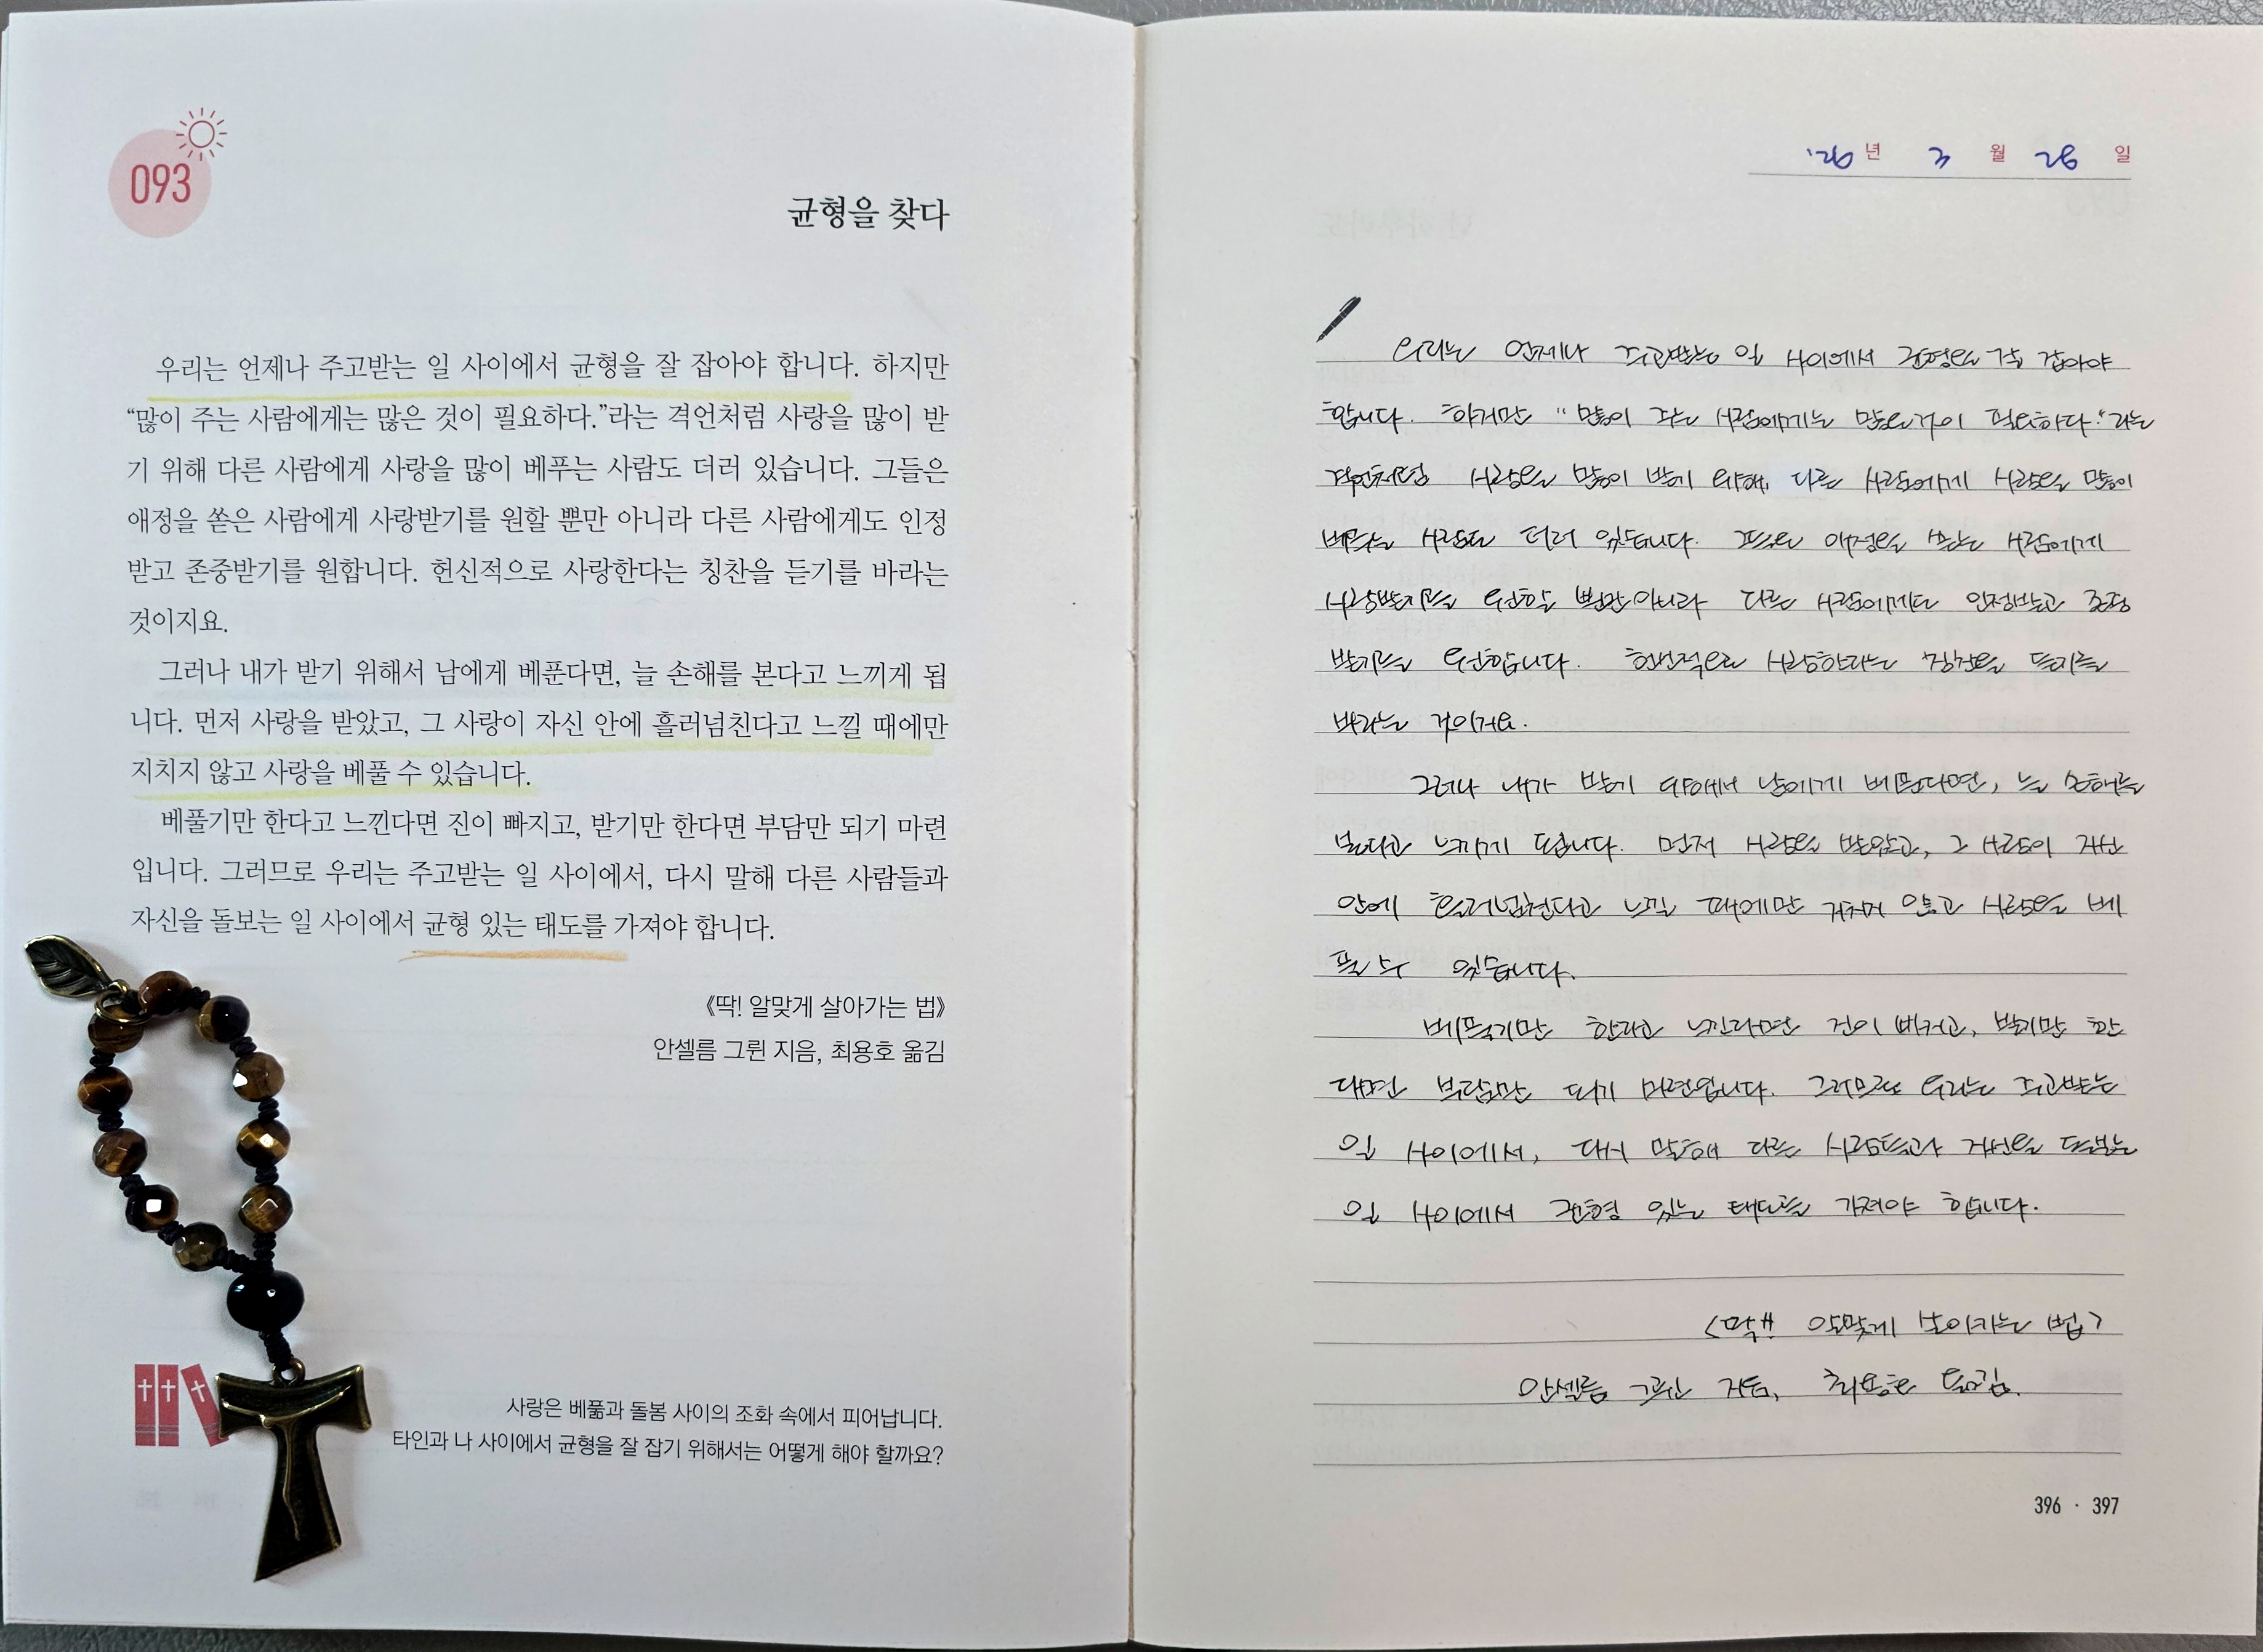 093
균형을 찾다
우리는 언제나 주고받는 일 사이에서 균형을 잘 잡아야 합니다. 하지만
“많이 주는 사람에게는 많은 것이 필요하다.”라는 격언처럼 사랑을 많이 받
기 위해 다른 사람에게 사랑을 많이 베푸는 사람도 더러 있습니다. 그들은
애정을 쏟은 사람에게 사랑받기를 원할 뿐만 아니라 다른 사람에게도 인정
받고 존중받기를 원합니다. 헌신적으로 사랑한다는 칭찬을 듣기를 바라는
것이지요.
그러나 내가 받기 위해서 남에게 베푼다면, 늘 손해를 본다고 느끼게 됩
니다. 먼저 사랑을 받았고, 그 사랑이 자신 안에 흘러넘친다고 느낄 때에만
지치지 않고 사랑을 베풀 수 있습니다.
베풀기만 한다고 느낀다면 진이 빠지고, 받기만 한다면 부담만 되기 마련
입니다. 그러므로 우리는 주고받는 일 사이에서, 다시 말해 다른 사람들과
자신을 돌보는 일 사이에서 균형 있는 태도를 가져야 합니다.
《딱! 알맞게 살아가는 법》
안셀름 그륀 지음, 최용호 옮김
사랑은 베풂과 돌봄 사이의 조화 속에서 피어납니다.
타인과 나 사이에서 균형을 잘 잡기 위해서는 어떻게 해야 할까요?
'26년 3월 28일
우리는 언제나 주고받는 일 사이에서 균형을 잘 잡아야
합니다. 하지만 "많이 주는 사람에게는 많은것이 필요하다."라는
격언처럼 사랑을 많이 받기 위해, 다른 사람에게 사랑을 많이
베푸는 사람도 더러 있습니다. 그들은 애정을 쏟는 사람에게
사랑받기를 원할 뿐만아니라 다른 사람에게도 인정받고 존중
받기를 원합니다. 헌신적으로 사랑한다는 칭찬을 듣기를
바라는 것이지요.
그러나 내가 받기 위해서 남에게 베푼다면, 늘 손해를
본다고 느끼게 됩니다. 먼저 사랑을 받았고, 그 사랑이 자신
안에 흘러넘친다고 느낄 때에만 지치지 않고 사랑을 베
풀 수 있습니다.
베풀기만 한다고 느낀다면 진이 빠지고, 받기만 한
다면 부담만 되기 마련입니다. 그러므로 우리는 주고받는
일 사이에서, 다시 말해 다른 사람들과 자신을 돌보는
일 사이에서 균형 있는 태도를 가져야 합니다.
<딱!! 알맞게 살아가는 법>
안셀름 그륀 지음, 최용호 옮김.
396 · 397